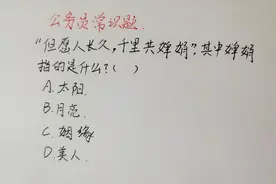 公务员常识题.
"但愿人长久,千里共婵娟",其中婵娟
指的是什么?( )
A.太阳.
B.月亮.
C.姻缘
D.美人.